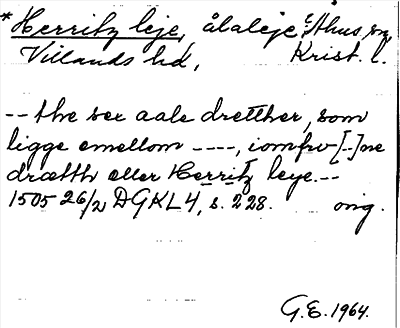 *Herritz leje, ålaleje i Åhus sn,
Villands hd, Krist. l.
-- the sex aale dretther, som
ligge emellom ----, iomfrv-[--]ne
drætth eller Herritz leye.--
1505 26/2 DGKL4, s. 228. orig.
G.E. 1964.